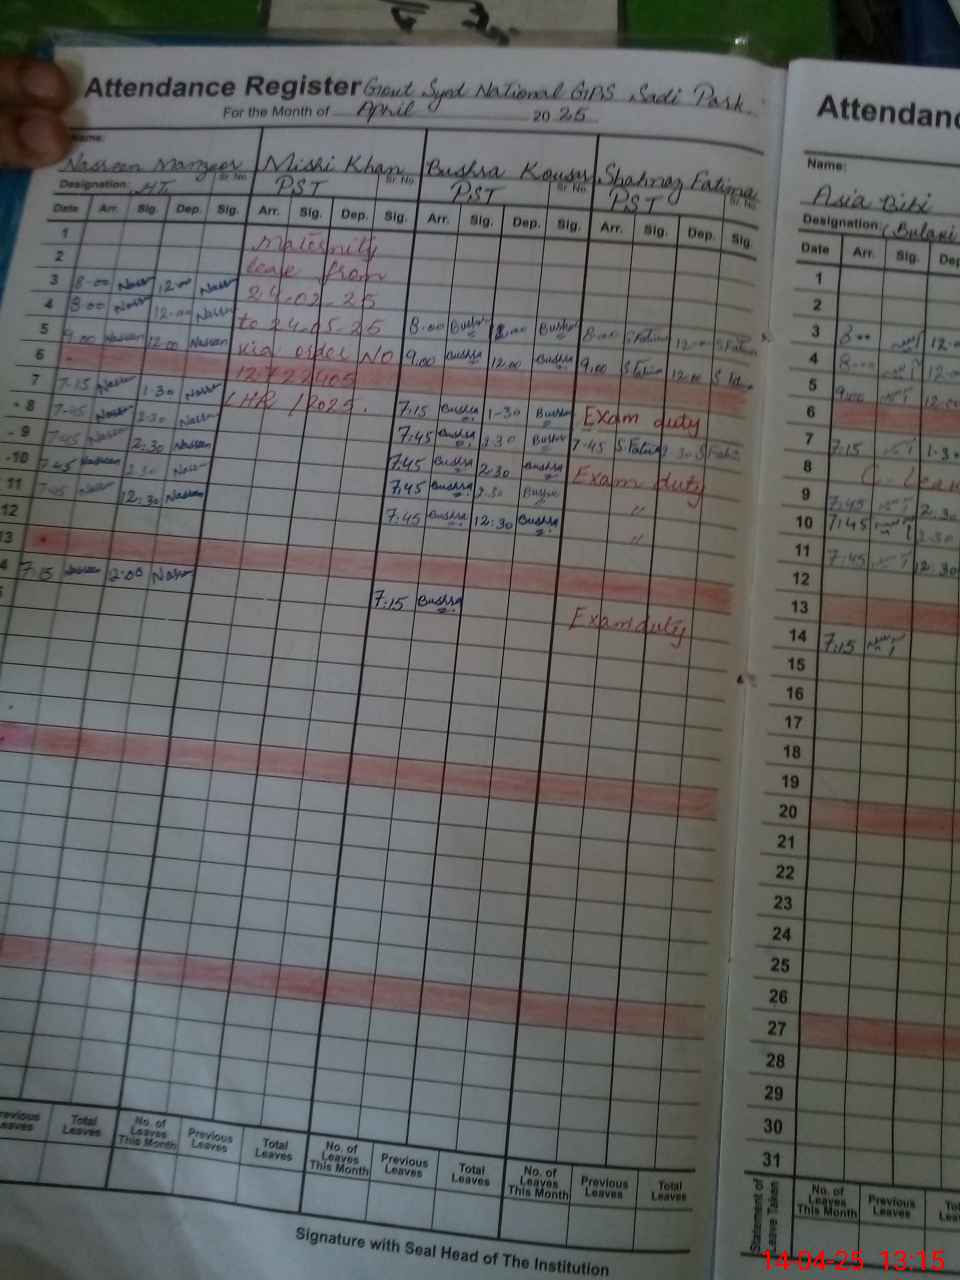 Attendance Register Govt Syed National GIPS Sadi Park
For the Month of April 2025
Name:
Nasreen Manzoor Mishi Khan Bushra Kousar Shahnaz Fatima
Sr No Sr No Sr No Sr No
Designation: HT PST PST PST
Date Arr. Sig. Dep. Sig. Arr. Sig. Dep. Sig. Arr. Sig. Dep. Sig. Arr. Sig. Dep. Sig.
1 Maternity
2 leave from
3 8-00 Nasreen 12-00 Nasreen 24-02-25
4 8-00 Nasreen 12-00 Nasreen to 24-05-25 8-00 Bushra 12-00 Bushra 8-00 S Fatima 12-00 S Fatima
5 9.00 Nasreen 12.00 Nasreen via order NO 9.00 Bushra 12.00 Bushra 9.00 S Fatima 12.00 S Fatima
6
7 7-15 Nasreen 1-30 Nasreen LHR /2025. 7:15 Bushra 1-30 Bushra Exam duty
8 7-45 Nasreen 2:30 Nasreen 7:45 Bushra 2:30 Bushra 7-45 S.Fatima S Fatima
9 7:45 Nasreen 2:30 Nasreen 7:45 Bushra 2:30 Bushra Exam duty
10 7:45 Nasreen 2:30 Nasreen 7:45 Bushra 2:30 Bushra "
11 7:45 Nasreen 12:30 Nasreen 7:45 Bushra 12:30 Bushra "
12
13
4 7:15 Nasreen 2:00 Nasreen 7:15 Bushra Exam duty
Previous Leaves Total Leaves No. of Leaves This Month Previous Leaves Total Leaves No. of Leaves This Month Previous Leaves Total Leaves No. of Leaves This Month Previous Leaves Total Leaves
Signature with Seal Head of The Institution
Attendanc
Name:
Asia Bibi
Designation
Date Arr. Sig. Dep
1
2
3 8-00 12-0
4 8-00 12-0
5 9:00 12:00
6
7 7:15 1-30
8 C. Leav
9 7:45 2:30
10 7:45 2:30
11 7:45 12:30
12
13
14 7:15
15
16
17
18
19
20
21
22
23
24
25
26
27
28
29
30
31
Statement of Leave Taken
No. of Leaves This Month Previous Leaves
14-04-25 13:15